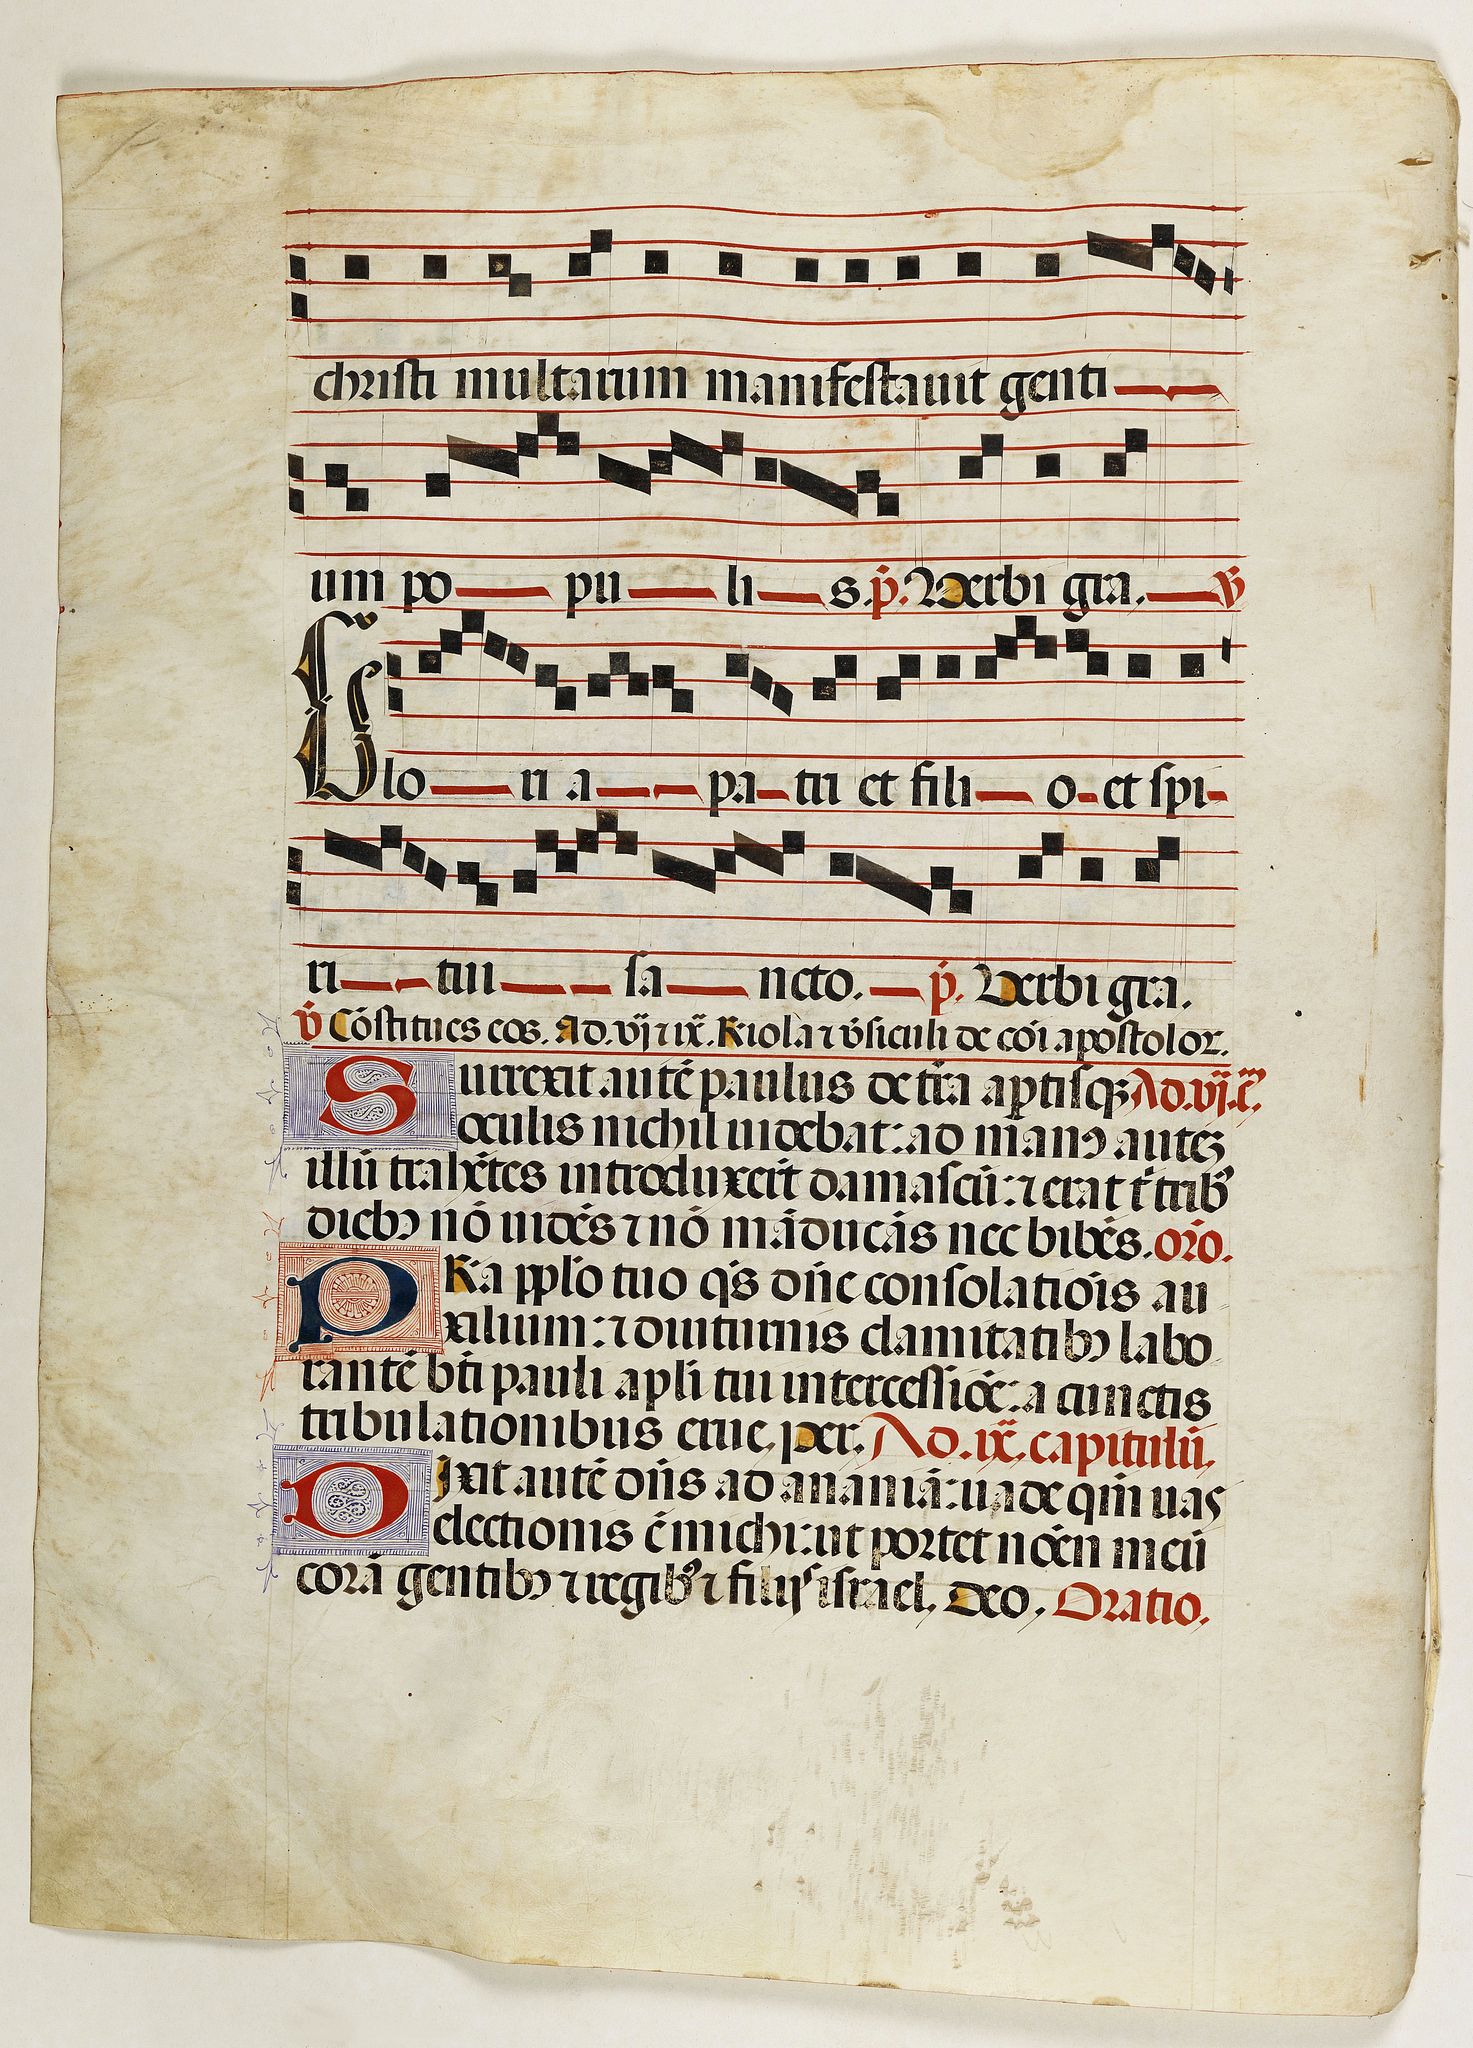 christi multarum manifestavit genti
um po pu li s. p̄. Verbi gra. v̄
Glo ri a pa tri et fili o et spi
ri tui sa ncto. p̄. Verbi gra.
v̄ Cōstitues eos. Ad. vj ⁊ ix. Rīola ⁊ v̄siculi de cōi apostolor.
Surrexit autē paulus de t̄ra aptisq̄ꝫ Ad. vj. c̄.
oculis nichil uidebat: ad manꝰ auteꝫ
illū trahētes introduxer̄t damascū: ⁊ erat ī tribꝰ
diebꝰ nō uidēs ⁊ nō māducās nec bibēs. or̄o.
PRa pplo tuo q̄s dn̄e consolatiōis au
xilium: ⁊ diuturnis clamitatibꝰ labo
rantē bt̄i pauli apl̄i tui intercessiōe: a cunctis
tribulationibus erue. per. Ad. ix. capitulū.
DIxit autē dn̄s ad ananiā: uade qm̄ uas
electionis ē michi: ut portet nōen meū
corā gentibꝰ ⁊ regibꝰ ⁊ filijs israel. Deo. Oratio.